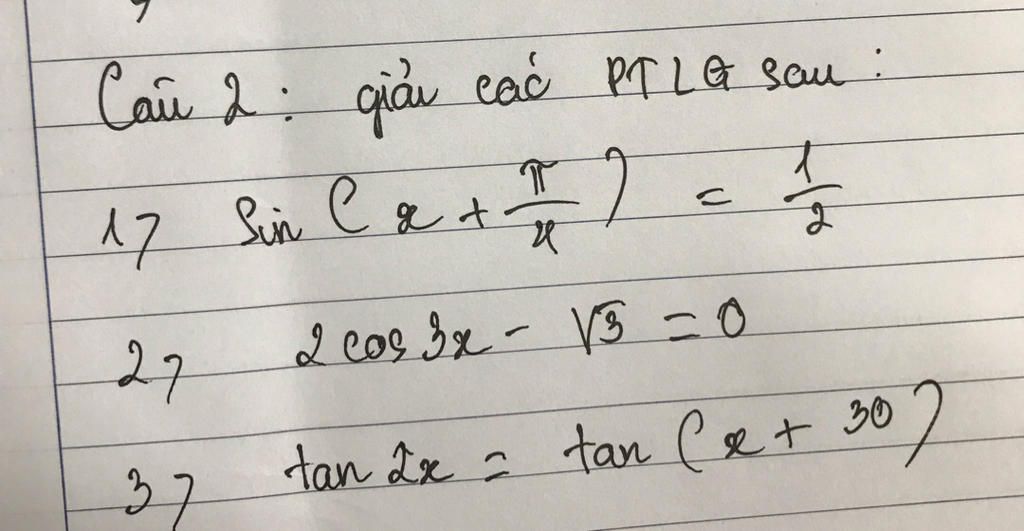 Câu 2 : giải các PTLG sau :
1> Sin ( x + π/4 ) = 1/2
2> 2 cos 3x - √3 = 0
3> tan 2x = tan ( x + 30 )